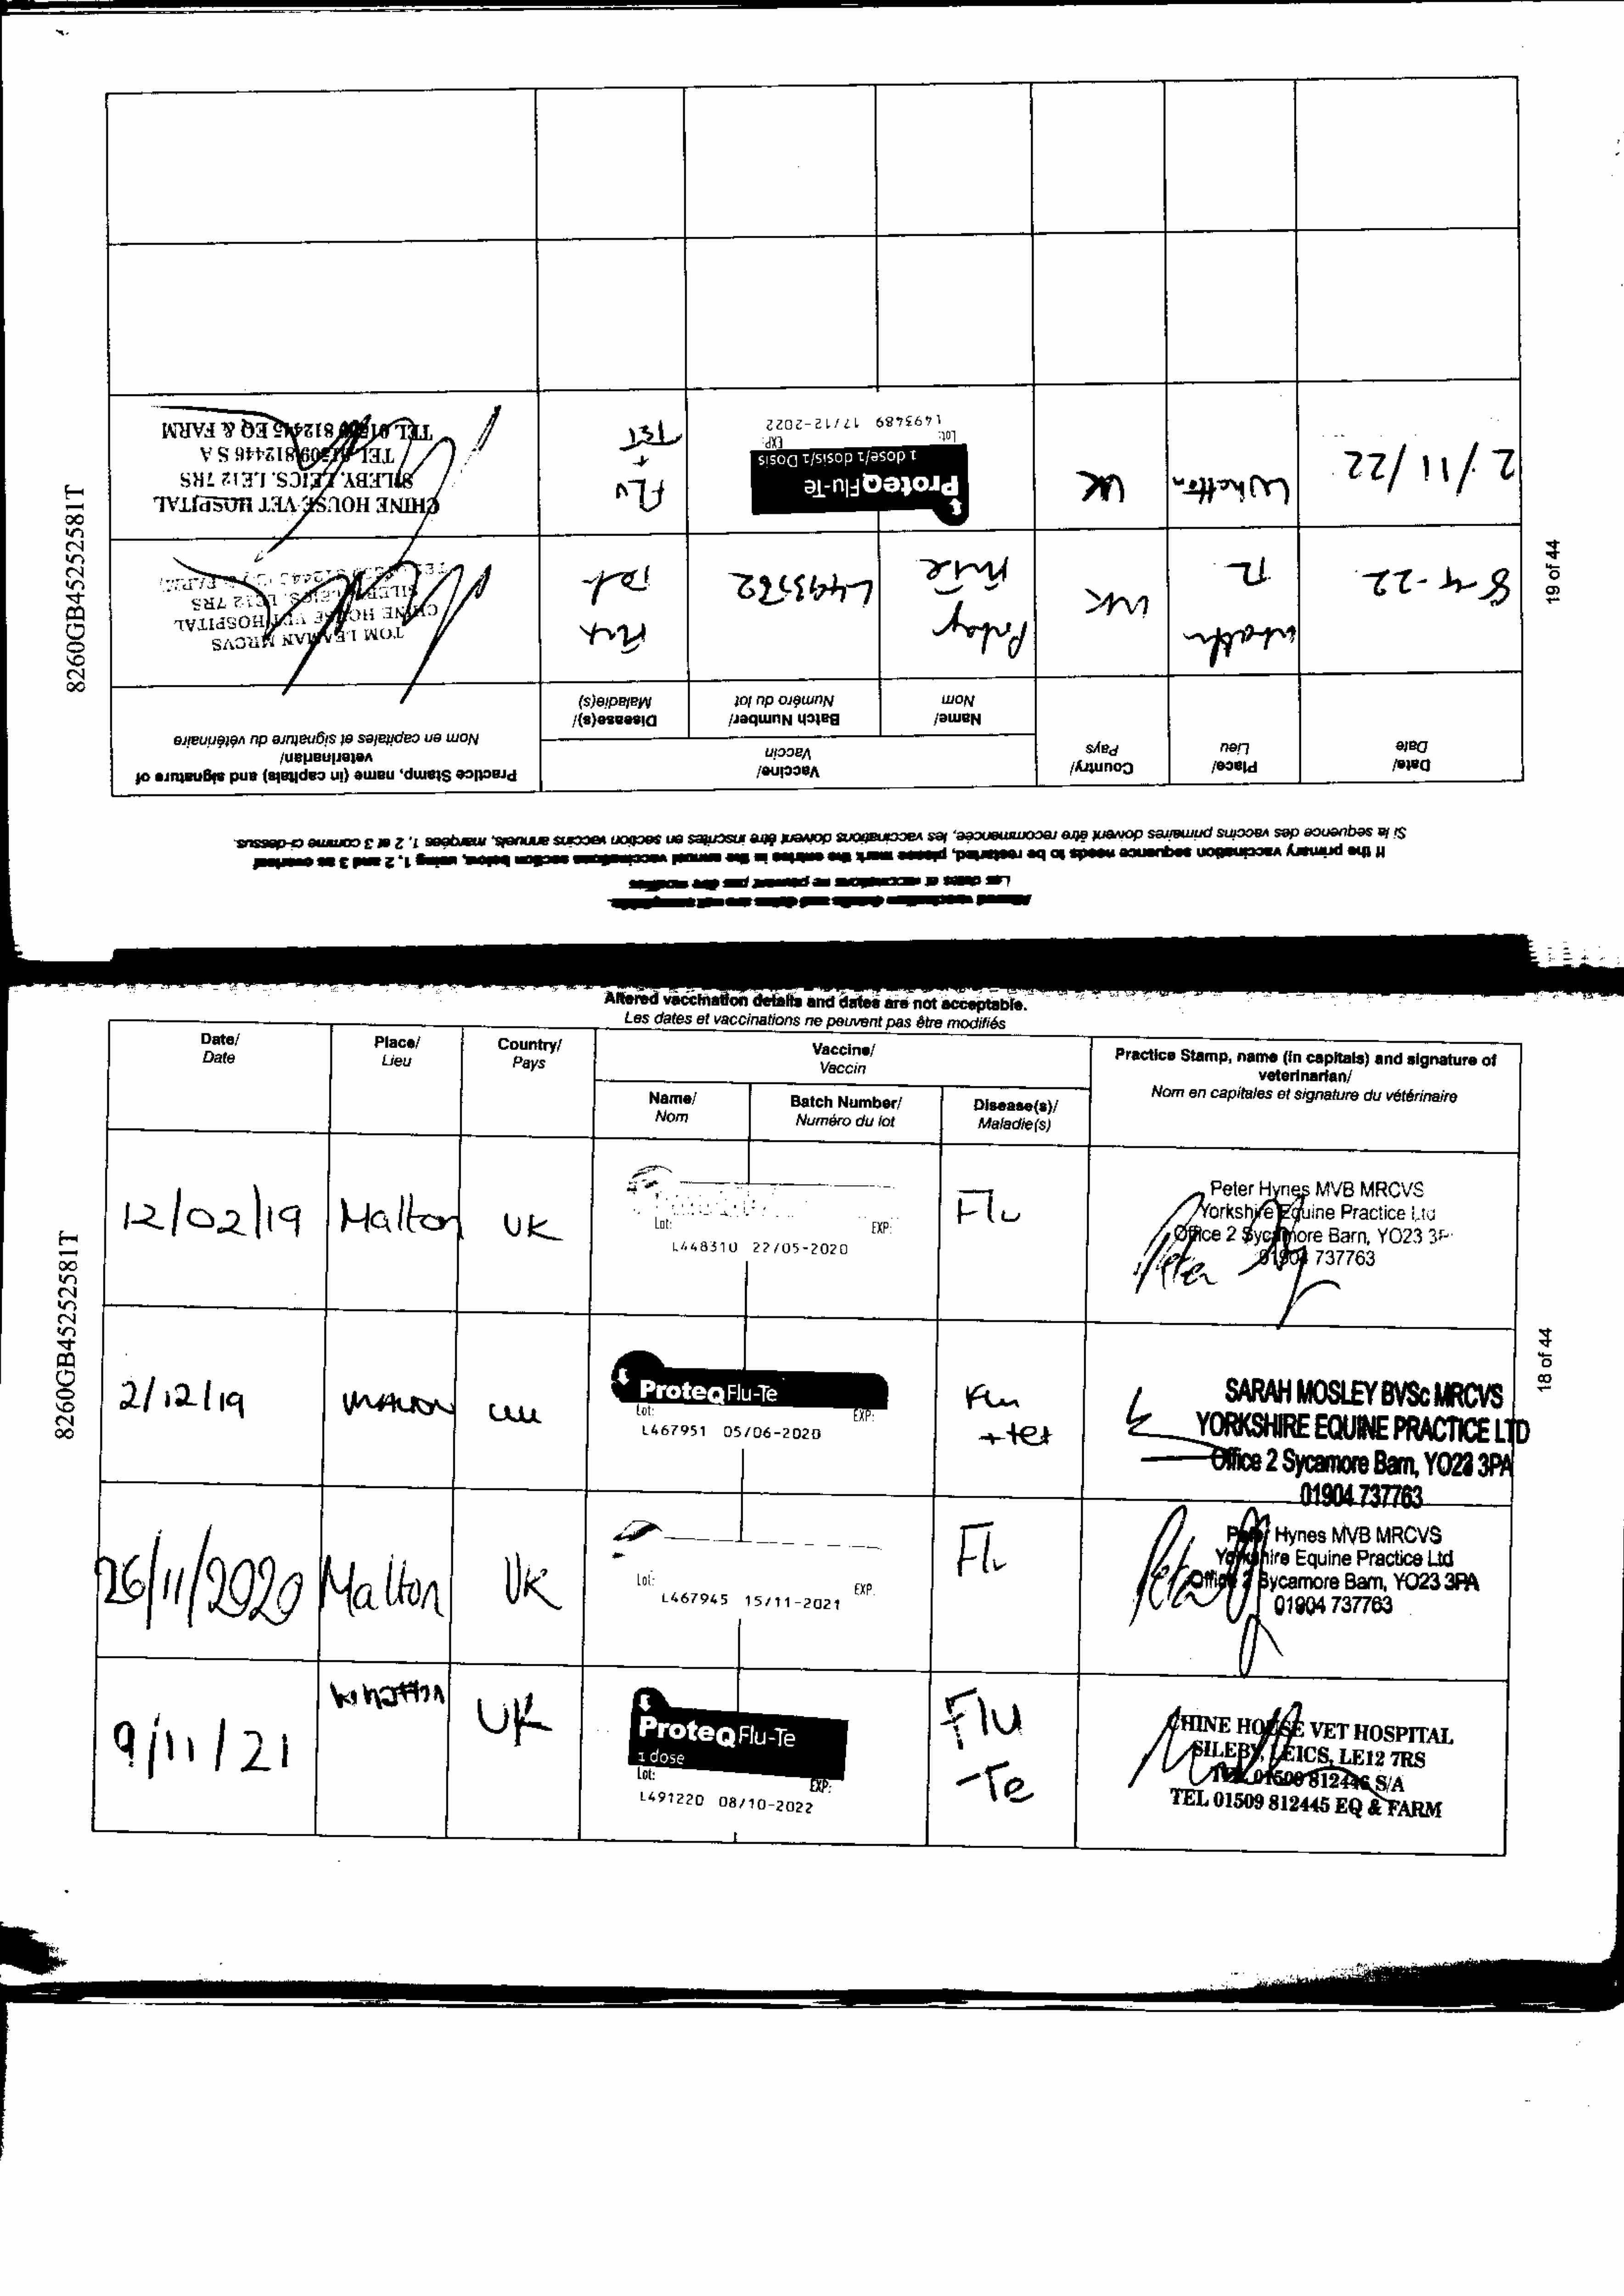 8260GB45252581T
18 of 44
Altered vaccination details and dates are not acceptable.
Les dates et vaccinations ne peuvent pas être modifiés
Date/
Date
Place/
Lieu
Country/
Pays
Vaccine/
Vaccin
Name/
Nom
Batch Number/
Numéro du lot
Disease(s)/
Maladie(s)
Practice Stamp, name (in capitals) and signature of
veterinarian/
Nom en capitales et signature du vétérinaire
12/02/19
Malton
UK
Lot:
EXP:
L448310 22/05-2020
Flu
Peter Hynes MVB MRCVS
Yorkshire Equine Practice Ltd
Office 2 Sycamore Barn, YO23 3P
01904 737763
2/12/19
MALTON
UK
ProteqFlu-Te
Lot:
EXP:
L467951 05/06-2020
Flu
+tet
SARAH MOSLEY BVSc MRCVS
YORKSHIRE EQUINE PRACTICE LTD
Office 2 Sycamore Barn, YO23 3PA
01904 737763
26/11/2020
Malton
UK
Lot:
EXP.
L467945 15/11-2021
Flu
Peter Hynes MVB MRCVS
Yorkshire Equine Practice Ltd
Office 2 Sycamore Barn, YO23 3PA
01904 737763
9/11/21
Whatton
UK
ProteqFlu-Te
1 dose
Lot:
EXP:
L491220 08/10-2022
Flu
-Te
CHINE HOUSE VET HOSPITAL
SILEBY, LEICS, LE12 7RS
TEL 01509 812446 S/A
TEL 01509 812445 EQ & FARM
8260GB45252581T
19 of 44
Altered vaccination details and dates are not acceptable.
Les dates et vaccinations ne peuvent pas être modifiés
If the primary vaccination sequence needs to be restarted, please mark the entries in the annual vaccinations section below, using 1, 2 and 3 as overleaf
Si la sequence des vaccins primaires doivent être recommencée, les vaccinations doivent être inscrites en section vaccins annuels, marqées 1, 2 et 3 comme ci-dessus.
Date/
Date
Place/
Lieu
Country/
Pays
Vaccine/
Vaccin
Name/
Nom
Batch Number/
Numéro du lot
Disease(s)/
Maladie(s)
Practice Stamp, name (in capitals) and signature of
veterinarian/
Nom en capitales et signature du vétérinaire
8-4-22
UK
Tet
TOM LEAMAN MRCVS
CHINE HOUSE VET HOSPITAL
SILEBY, LEICS, LE12 7RS
2/11/22
Whatton
UK
ProteqFlu-Te
1 dose/1 dosis/1 Dosis
Lot:
EXP:
L493489 17/12-2022
FLU
+
TET
CHINE HOUSE VET HOSPITAL
SILEBY, LEICS. LE12 7RS
TEL 01509 812446 S A
TEL 01509 812445 EQ & FARM